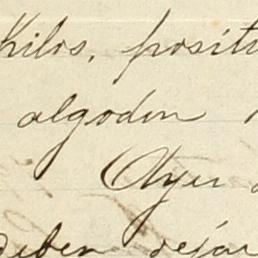 Kilos, positu
algodon
Ayer
deben dejar